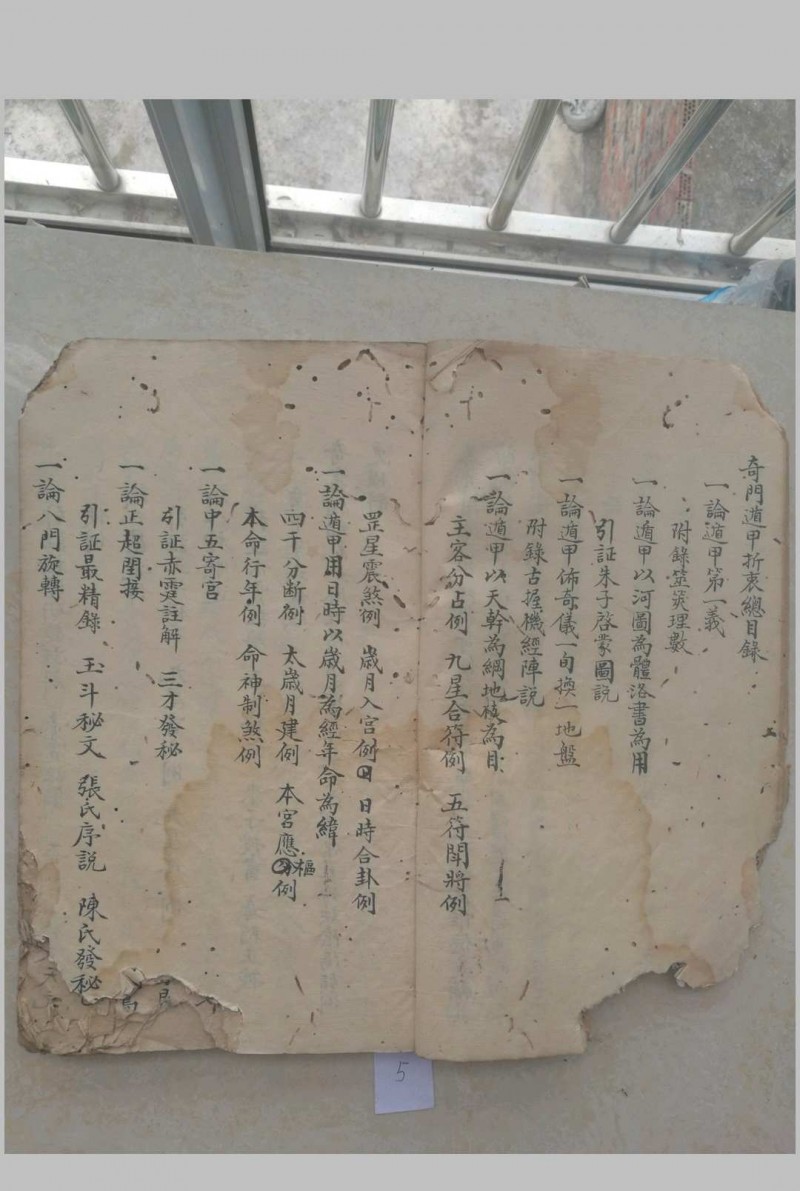 奇門遁甲折衷總目錄
一論遁甲第一義
附錄筮䇲理數
一論遁甲以河圖為體洛書為用
引証朱子啓蒙圖説
一論遁甲佈奇儀一旬換一地盤
附錄古握機經陣説
一論遁甲以天幹為綱地枝為目
主客分占例 九星合符例 五符聞將例
罡星震煞例 歲月入宮例 日時合卦例
一論遁甲用日時以歲月為經年命為緯
四干分断例 太歲月建例 本宮應樞例
本命行年例 命神制煞例
一論中五寄宮
引証赤霆註解 三才發秘
一論正超閏接
引証最精錄 玉斗秘文 張氏序説 陳氏發秘
一論八門旋轉
5